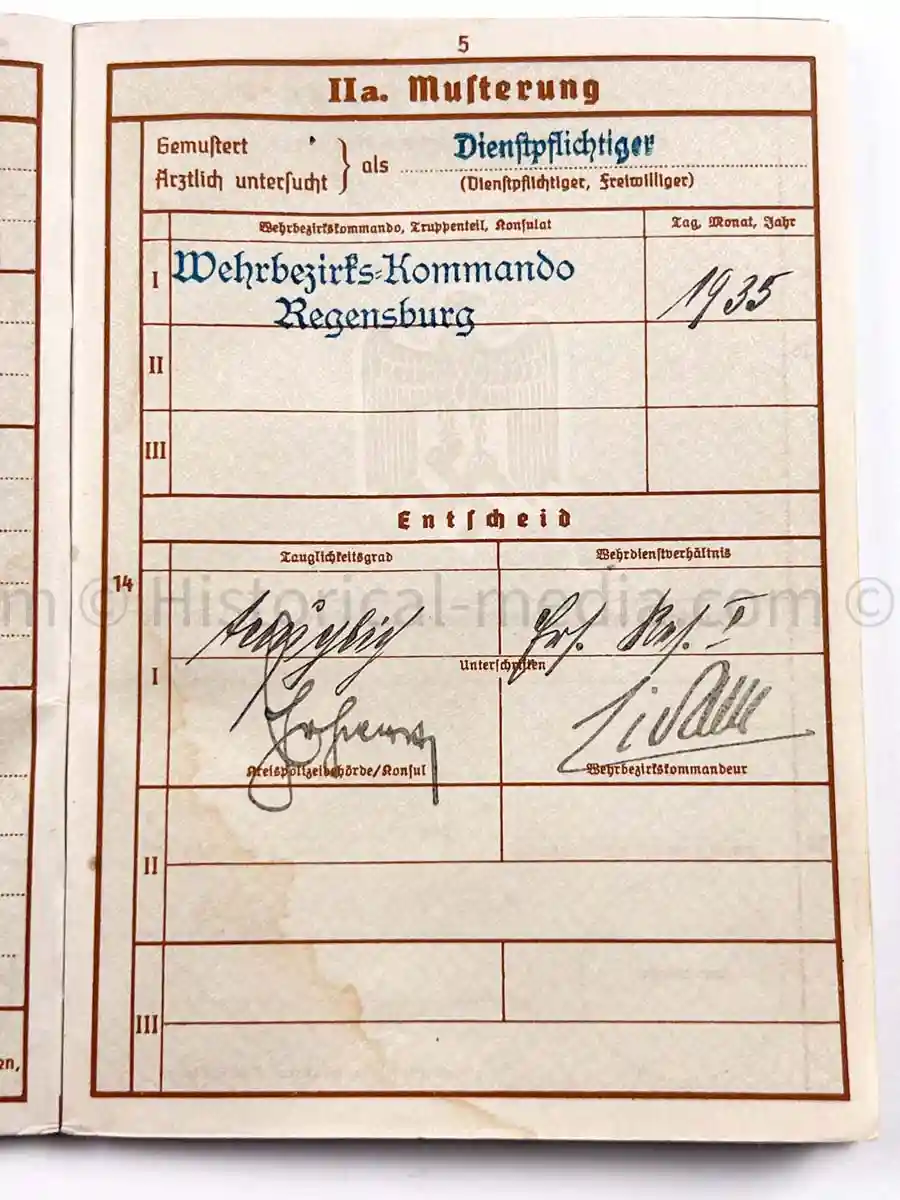 5
IIa. Muſterung
Gemuſtert
Ärztlich unterſucht } als Dienſtpflichtiger
(Dienſtpflichtiger, Freiwilliger)
Wehrbezirkskommando, Truppenteil, Konſulat
Tag, Monat, Jahr
I Wehrbezirks-Kommando
Regensburg
1935
II
III
Entſcheid
Tauglichkeitsgrad
Wehrdienſtverhältnis
14
© Historical-media.com ©
tauglich
Erſ. Reſ. I
I
Unterſchriften
Kreispolizeibehörde/Konſul
Wehrbezirkskommandeur
II
III
en,